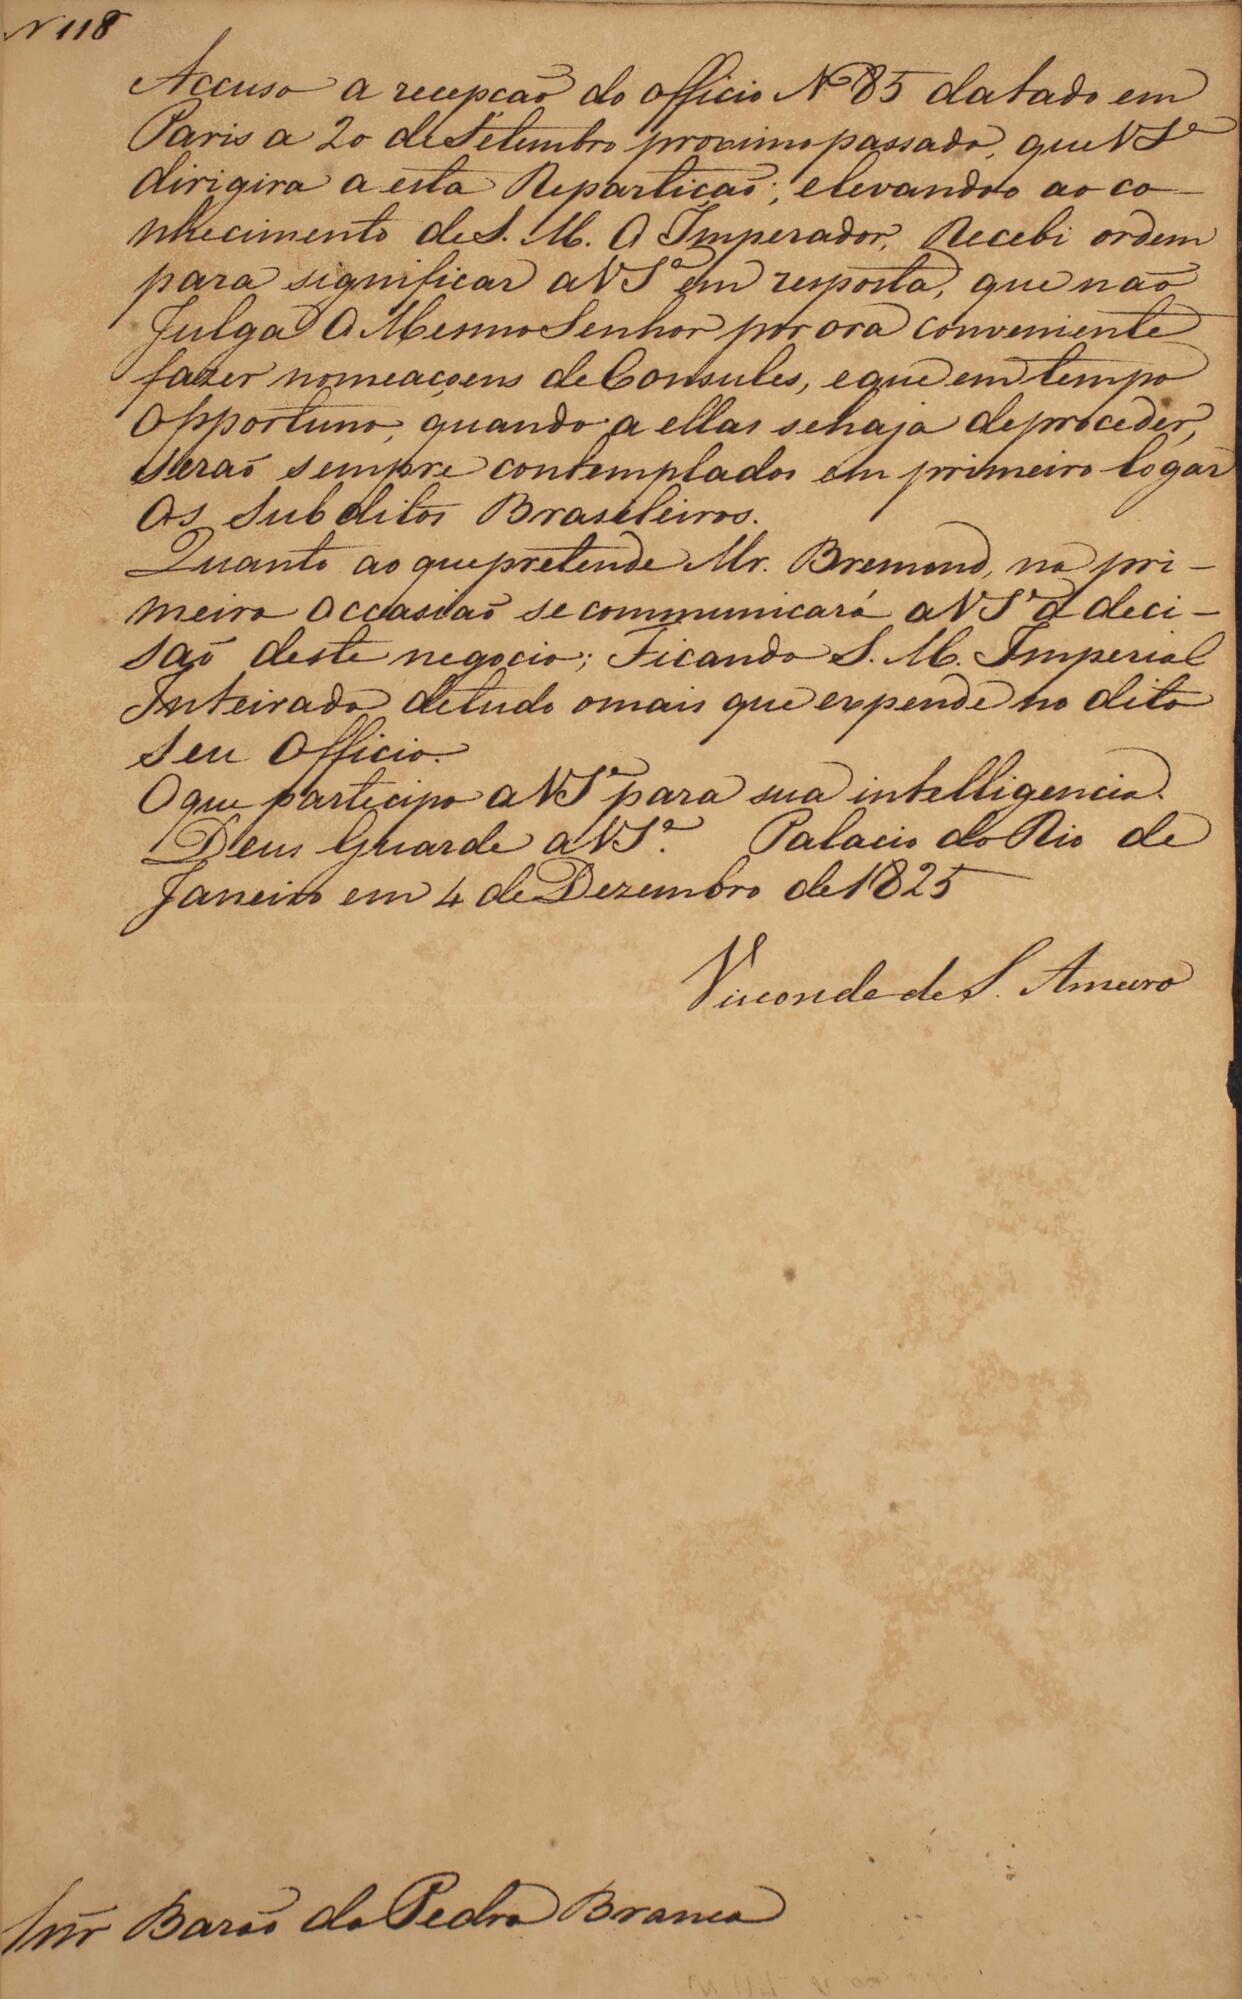 N 118
Accuso a recepcaõ do officio Nº 85 datado em
Paris a 20 de Setembro proximo passado, que V Sª
dirigira a esta Repartiçaõ; elevando-o ao co-
nhecimento de S. M. O Imperador, Recebi ordem
para significar a V Sª em resposta, que naõ
Julga O Mesmo Senhor por ora conveniente
fazer nomeaçoens de Consules, e que em tempo
opportuno, quando a ellas se haja de proceder,
seraõ sempre contemplados em primeiro logar
os Subditos Brasileiros.
Quanto ao que pretende Mr. Bremond, na pri-
meira occasiaõ se communicará a V Sª a deci-
saõ deste negocio; Ficando S. M. Imperial
Inteirado de tudo o mais que expende no dito
seu Officio.
O que participo a V Sª para sua intelligencia.
Deus Guarde a V Sª. Palacio do Rio de
Janeiro em 4 de Dezembro de 1825
Visconde de S. Amaro
Snr Baraõ da Pedra Branca